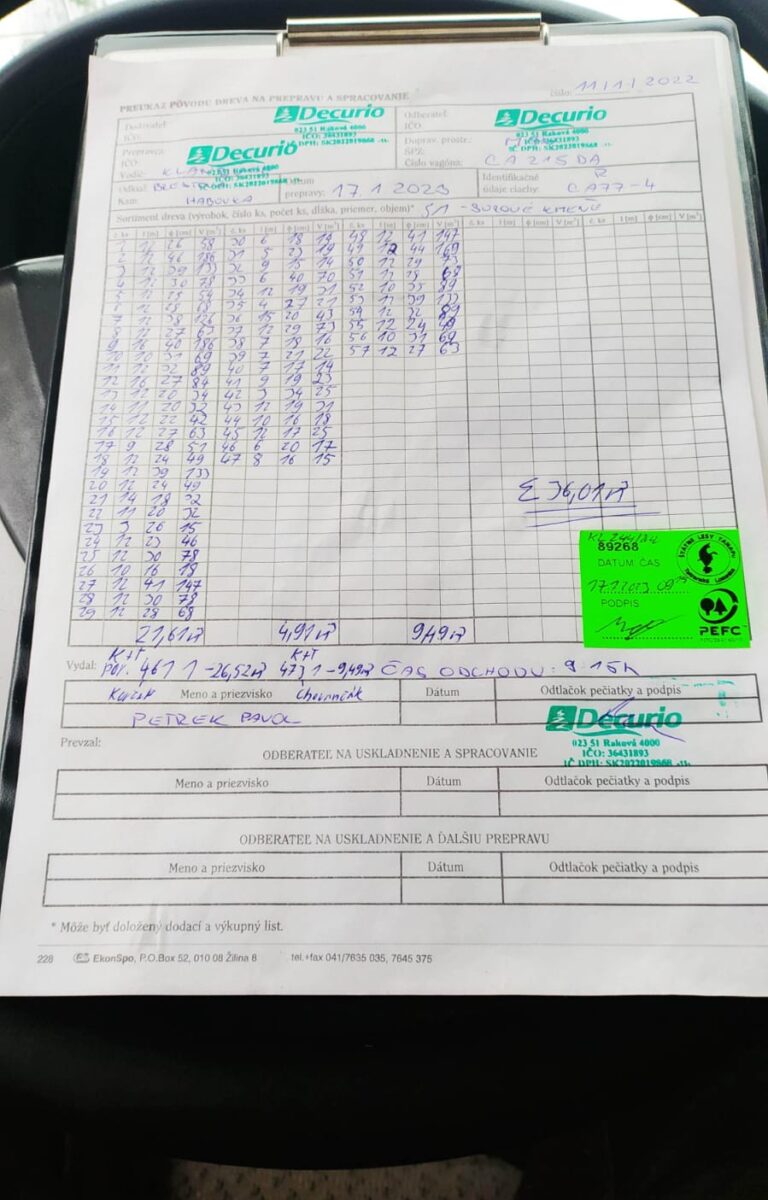 PREUKAZ PÔVODU DREVA NA PREPRAVU A SPRACOVANIE číslo: 11/1/2022
Dodávateľ: Decurio Odberateľ: Decurio
IČO: 023 51 Raková 4000 IČO: 023 51 Raková 4000
IČO: 36431893 IČO: 36431893
IČ DPH: SK2022019868 IČ DPH: SK2022019868
Prepravca: Decurio Doprav. prostr.:
IČO: ŠPZ:
Vodič: Číslo vagóna: CA 215 DA
Odkiaľ: Dátum prepravy: 17.1 2023 Identifikačné údaje ciachy: CA77-4
Kam: HABOVKA
Sortiment dreva (výrobok, číslo ks, počet ks, dĺžka, priemer, objem)* S1 - SUROVÉ KMENE
č. ks l [m] φ [cm] V [m³] č. ks l [m] φ [cm] V [m³] č. ks l [m] φ [cm] V [m³] č. ks l [m] φ [cm] V [m³] č. ks l [m] φ [cm] V [m³]
1 12 26 58 30 6 18 48 12 41 147
2 12 46 186 31 5 23 19 49 12 44 169
3 12 39 133 32 9 15 14 50 12 29 73
4 12 30 78 33 6 40 70 51 12 28 68
5 12 25 54 34 12 19 31 52 10 35 89
6 12 28 68 35 4 27 21 53 11 39 133
7 38 126 36 15 20 43 54 12 32 89
8 12 27 63 37 12 29 73 55 12 24 49
9 16 40 186 38 7 18 16 56 10 31 69
10 10 31 69 39 7 21 22 57 12 27 63
11 12 32 89 40 7 17 14
12 16 27 84 41 9 19 23
13 12 20 34 42 3 34 25
14 11 20 32 43 12 19 31
15 12 22 42 44 10 16 18
16 12 27 63 45 12 17 25
17 9 28 51 46 6 20 17
18 12 24 49 47 8 16 15
19 12 39 133
20 12 24 49
21 14 18 32
22 11 20 32
23 3 26 15
24 12 23 46
25 12 30 78
26 10 16 18
27 12 41 147
28 12 30 78
29 12 28 68
Σ 36,01 m³
89268
DÁTUM ČAS
17.1.2023 09
PODPIS
ŠTÁTNE LESY TANAPU
PEFC
21,61 m³ 4,91 m³ 9,49 m³
K+T K+T
Vydal: POR. 461 1 - 26,52 m³ 473 1 - 9,49 m³ ČAS ODCHODU: 9 15h
Meno a priezvisko Dátum Odtlačok pečiatky a podpis
PETREK PAVOL Decurio
023 51 Raková 4000
Prevzal: IČO: 36431893
IČ DPH: SK2022019868
ODBERATEĽ NA USKLADNENIE A SPRACOVANIE
Meno a priezvisko Dátum Odtlačok pečiatky a podpis
ODBERATEĽ NA USKLADNENIE A ĎALŠIU PREPRAVU
Meno a priezvisko Dátum Odtlačok pečiatky a podpis
* Môže byť doložený dodací a výkupný list.
228 EkonSpo, P.O.Box 52, 010 08 Žilina 8 tel.+fax 041/7635 035, 7645 375